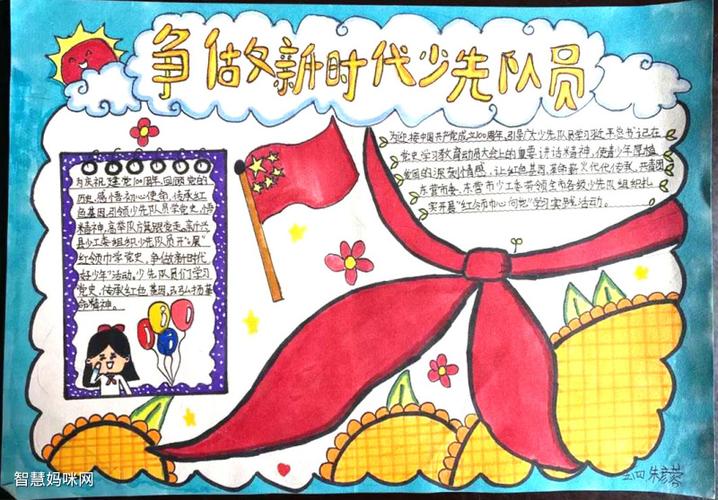 争做新时代少先队员
为迎接中国共产党成立100周年,引导广大少先队员学习近平总书记在
党史学习教育动员大会上的重要讲话精神,使青少年厚植
爱国的深刻情感,让红色基因,革命薪火代代传承,共青团
东营市委、东营市少工委带领全市各级少先队组织扎
实开展"红领巾心向党"学习实践活动。
为庆祝建党100周年,回顾党的
历史,感悟初心使命,传承红
色基因,引领少先队员学党史,悟
精神,高举队旗跟党走。
县少工委组织少先队员开展
"红领巾学党史,争做新时代
好少年"活动。少先队员们学习
党史,传承红色基因,弘扬革
命精神。
智慧妈咪网
三四 朱彦蓉